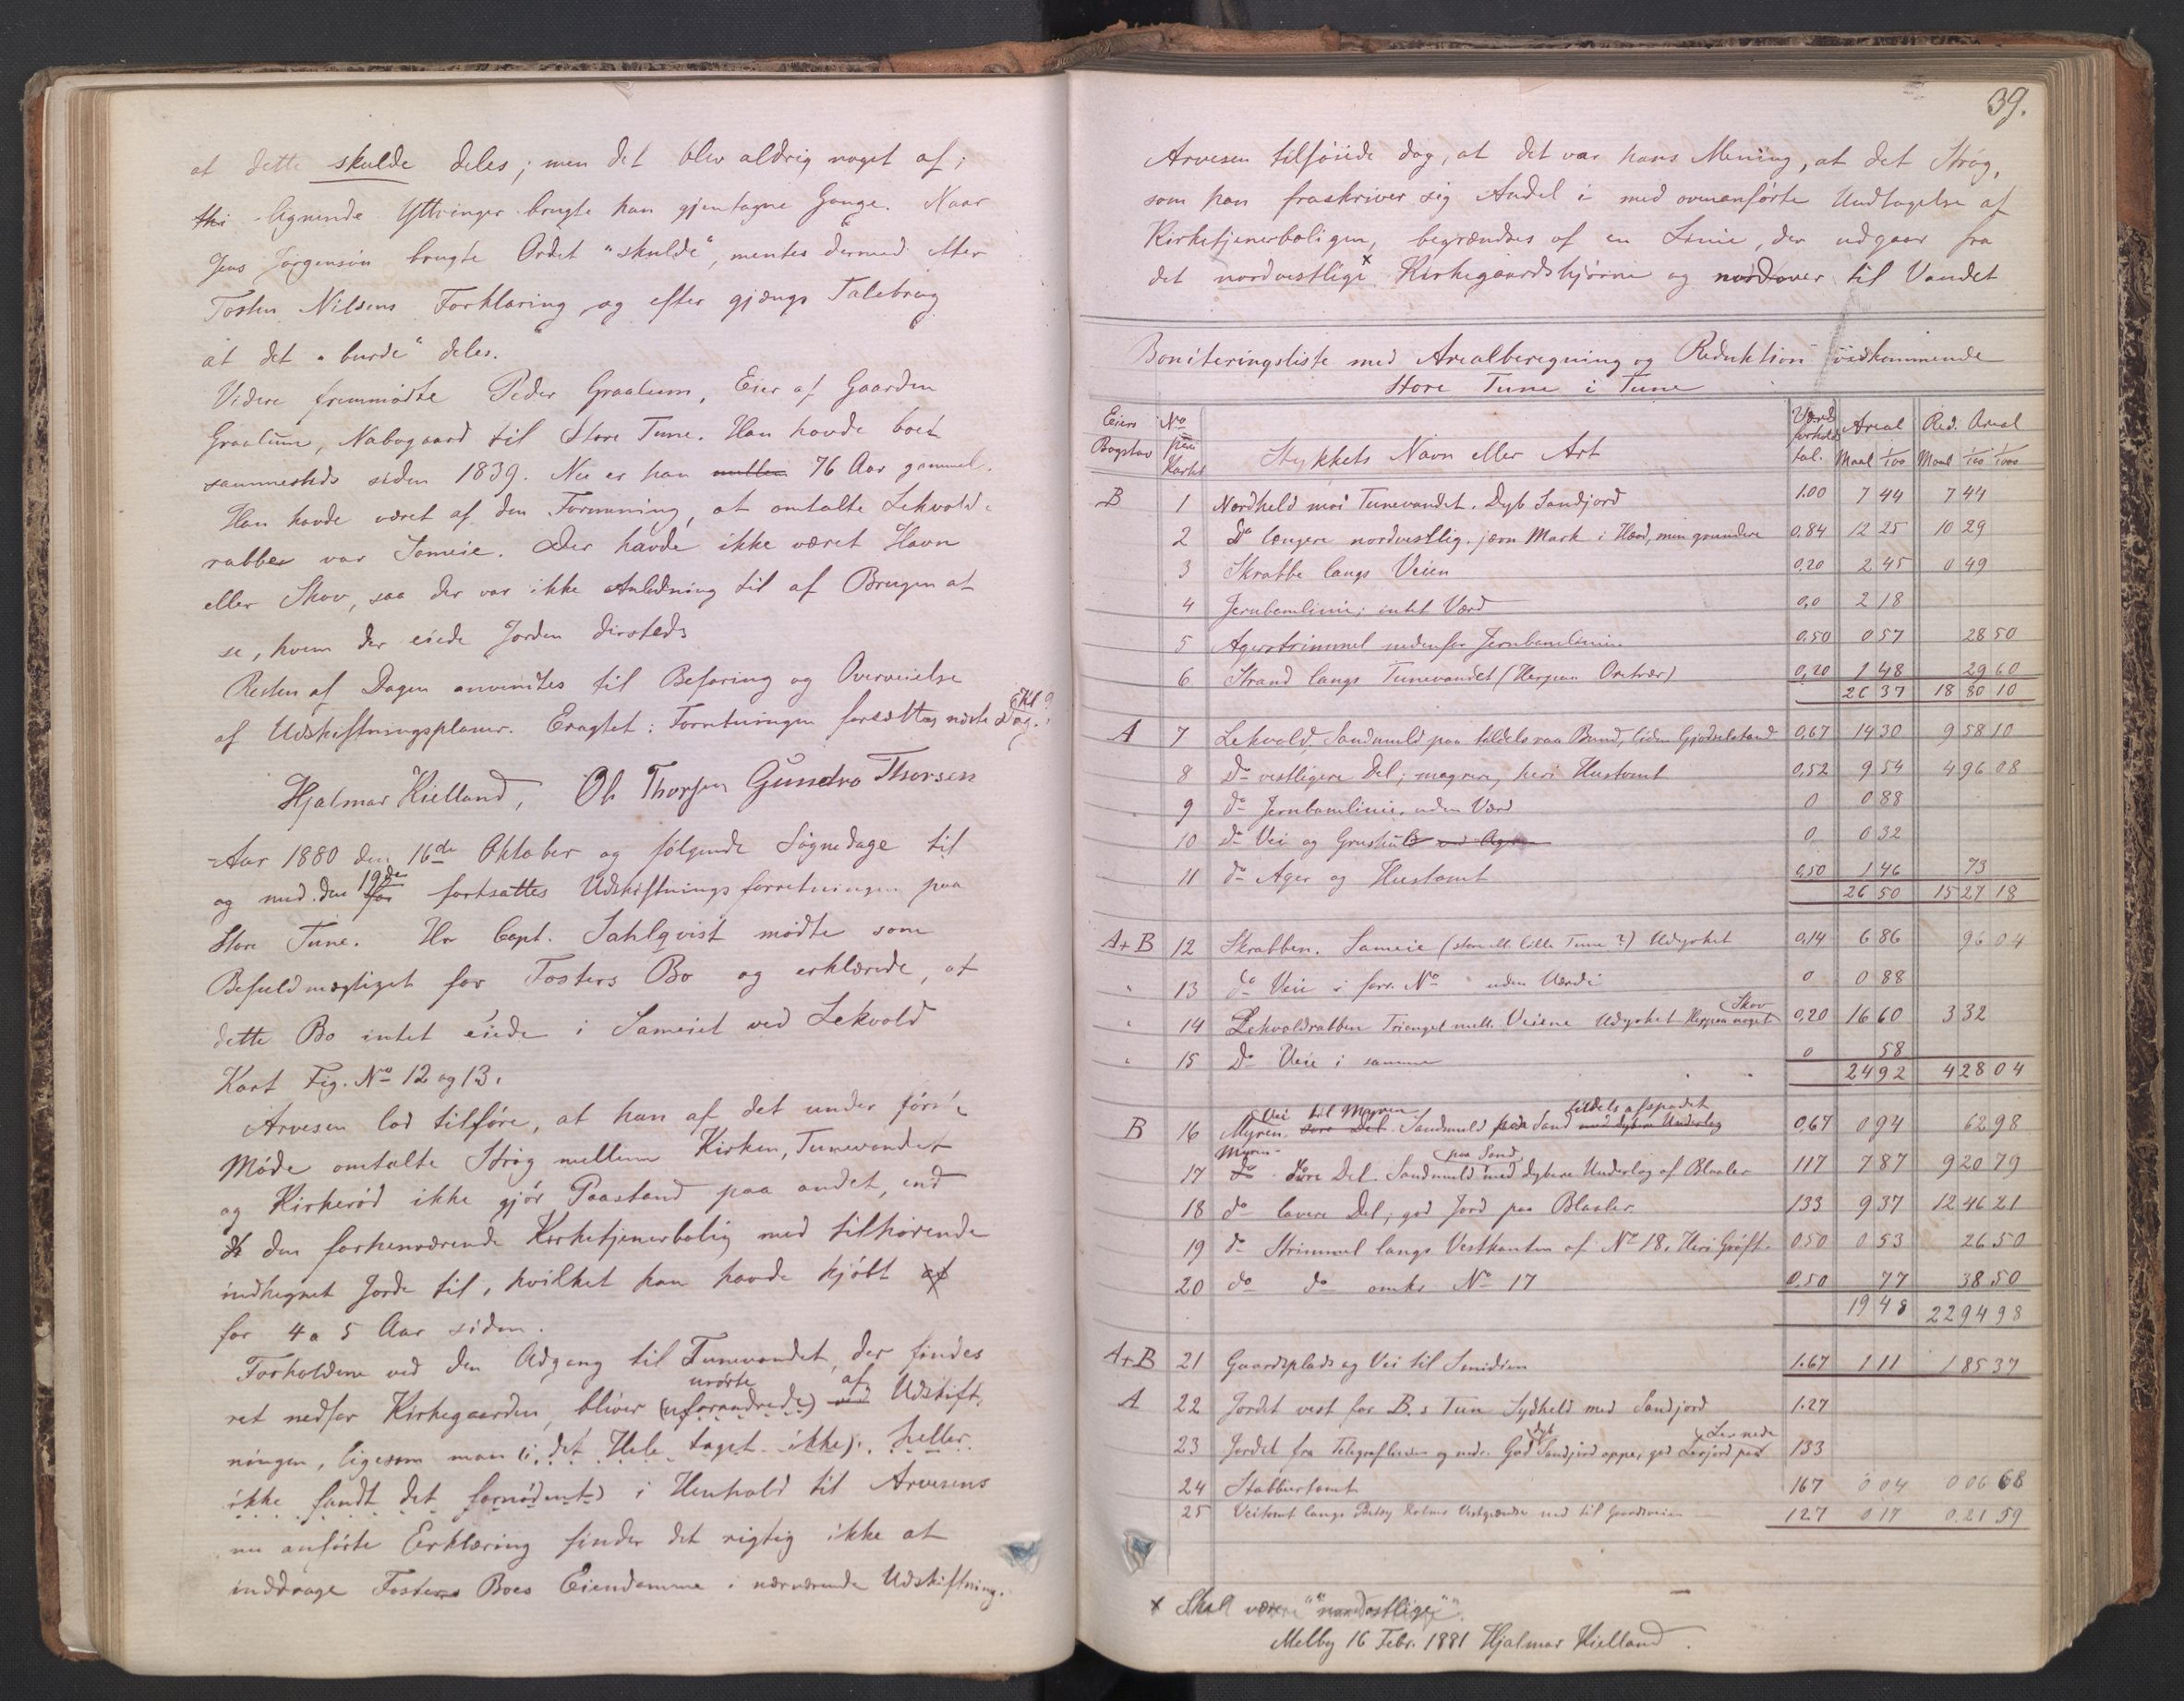 at dette skulde deles; men det blev aldrig noget af;
thi lignende Yttringer brugte han gjentagne Gange. Naar
Jens Jørgensøn brugte Ordet "skulde", mentes dermed efter
Tosten Nilsens Forklaring og efter gjængs Talebrug
at det "burde" deles.
Videre fremmødte Peder Graalum, Eier af Gaarden
Graalum, Nabogaard til Store Tune. Han havde boet
sammesteds siden 1839. Nu er han mellem 76 Aar gammel.
Han havde været af den Formening, at omtalte Lekvold-
rabber var Sameie. Der havde ikke været Havn
eller Skov, saa der var ikke Anledning til af Brugen at
se, hvem der eiede Jorden dersteds
Resten af Dagen anvendtes til Befaring og Overveielse
af Udskiftningsplaner. Eragtet: Forretningen fortsættes næste Dag.
Hjalmar Kielland, Ole Thorsen Gundro Thorsen
Aar 1880 den 16de Oktober og følgende Søgnedage til
og med den 19de for fortsattes Udskiftningsforretningen paa
Store Tune. Hr Capt. Sahlqvist mødte som
Befuldmægtiget for Fosters Bo og erklærede, at
dette Bo intet eiede i Sameiet ved Lekvold
Kart Fig. No 12 og 13.
Arvesen lod tilføre, at han af det under første
Møde omtalte Strøg mellem Kirken, Tunevandet
og Kirkerød ikke gjør Paastand paa andet, end
den forhenværende Kirketjenerbolig med tilhørende
indhegnet Jorde til, hvilket han havde kjøbt af
for 4 a 5 Aar siden.
Forholdene ved den Adgang til Tunevandet, der findes
urørte af
ret nedfor Kirkegaarden, bliver (uforandrede) ved Udskift-
ningen, ligesom man (i det Hele taget ikke) heller
ikke fandt det fornødent) i Henhold til Arvesens
nu anførte Erklæring finder det rigtig ikke at
inddrage Fosters Boes Eiendomme i nærværende Udskiftning.
39.
Arvesen tilføiede dog, at det var hans Mening, at det Strøg,
som han fraskriver sig Andel i med ovenanførte Undtagelse af
Kirketjenerboligen, begrændses af en Linie, der udgaar fra
det nordvestlige x Kirkegaardshjørne og nordover til Vandet
Boniteringsliste med Arealberegning og Reduktion vedkommende
Store Tune i Tune
Eiers Bogstav No paa Kartet Stykkets Navn eller Art Værdiforholdstal. Areal Maal 1/100 Red. Areal Maal 1/100 1/1000
B 1 Nordheld mod Tunevandet. Dyb Sandjord 1.00 7 44 7 44
2 Do længere nordvestlig. jævn Mark i Hæld, men grundere 0,84 12 25 10 29
3 Skrabbe langs Veien 0,20 2 45 0 49
4 Jernbanelinie; intet Værd 0,0 2 18
5 Agerstrimmel nedenfor Jernbanelinien 0,50 0 57 28 50
6 Strand langs Tunevandet (Herpaa Oretrær) 0,20 1 48 29 60
26 37 18 80 10
A 7 Lekvold, Sandmuld paa tildels raa Bund, liden Gjødselstand 0,67 14 30 9 58 10
8 Do vestligere Del; magrere, heri Hustomt 0,52 9 54 4 96 08
9 do Jernbanelinie, uden Værd 0 0 88
10 do Vei og Grushul ved Ager 0 0 32
11 do Ager og Hustomt 0,50 1 46 73
26 50 15 27 18
A+B 12 Skrabben. Sameie (store ell. lille Tune?) Udyrket 0,14 6 86 96 04
" 13 do Veie i forr. No uden Værdi 0 0 88
" 14 Lekvoldrabben Triangel mell. Veiene Udyrket Herpaa noget Skov 0,20 16 60 3 32
" 15 Do Veie i samme 0 58
24 92 4 28 04
Vei til Myren tildels afspadet
B 16 Myren. øvre Del. Sandmuld paa Sand med dybere Underlag 0,67 0 94 62 98
Myren paa Sand
17 do øvre Del. Sandmuld med dybere Underlag af Blaaler 117 7 87 9 20 79
18 do lavere Del; god Jord paa Blaaler 133 9 37 12 46 21
19 do Strimmel langs Vestkanten af No 18. Heri Grøft. 0,50 0 53 26 50
20 do do omkr No 17 0,50 77 38 50
19 48 22 94 98
A+B 21 Gaardsplads og Vei til Smidien 1.67 1 11 1 85 37
A 22 Jordet vest for B.s Tun Sydheld med Sandjord 1.27
23 Jordet fra Telegraflinien og nedr. God dyb Sandjord oppe, god Lerjord paa Ler nede 133
24 Stabburtomt 167 0 04 0 06 68
25 Veitomt langs Vestgrændse ned til Gaardsveien 127 0 17 0.21 59
x Skal være "nordostlige".
Melby 16 Febr. 1881 Hjalmar Kielland.